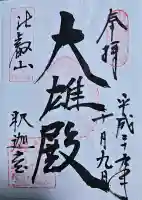 奉拝
平成 年
十月九日
大雄殿
比叡山
釈迦堂